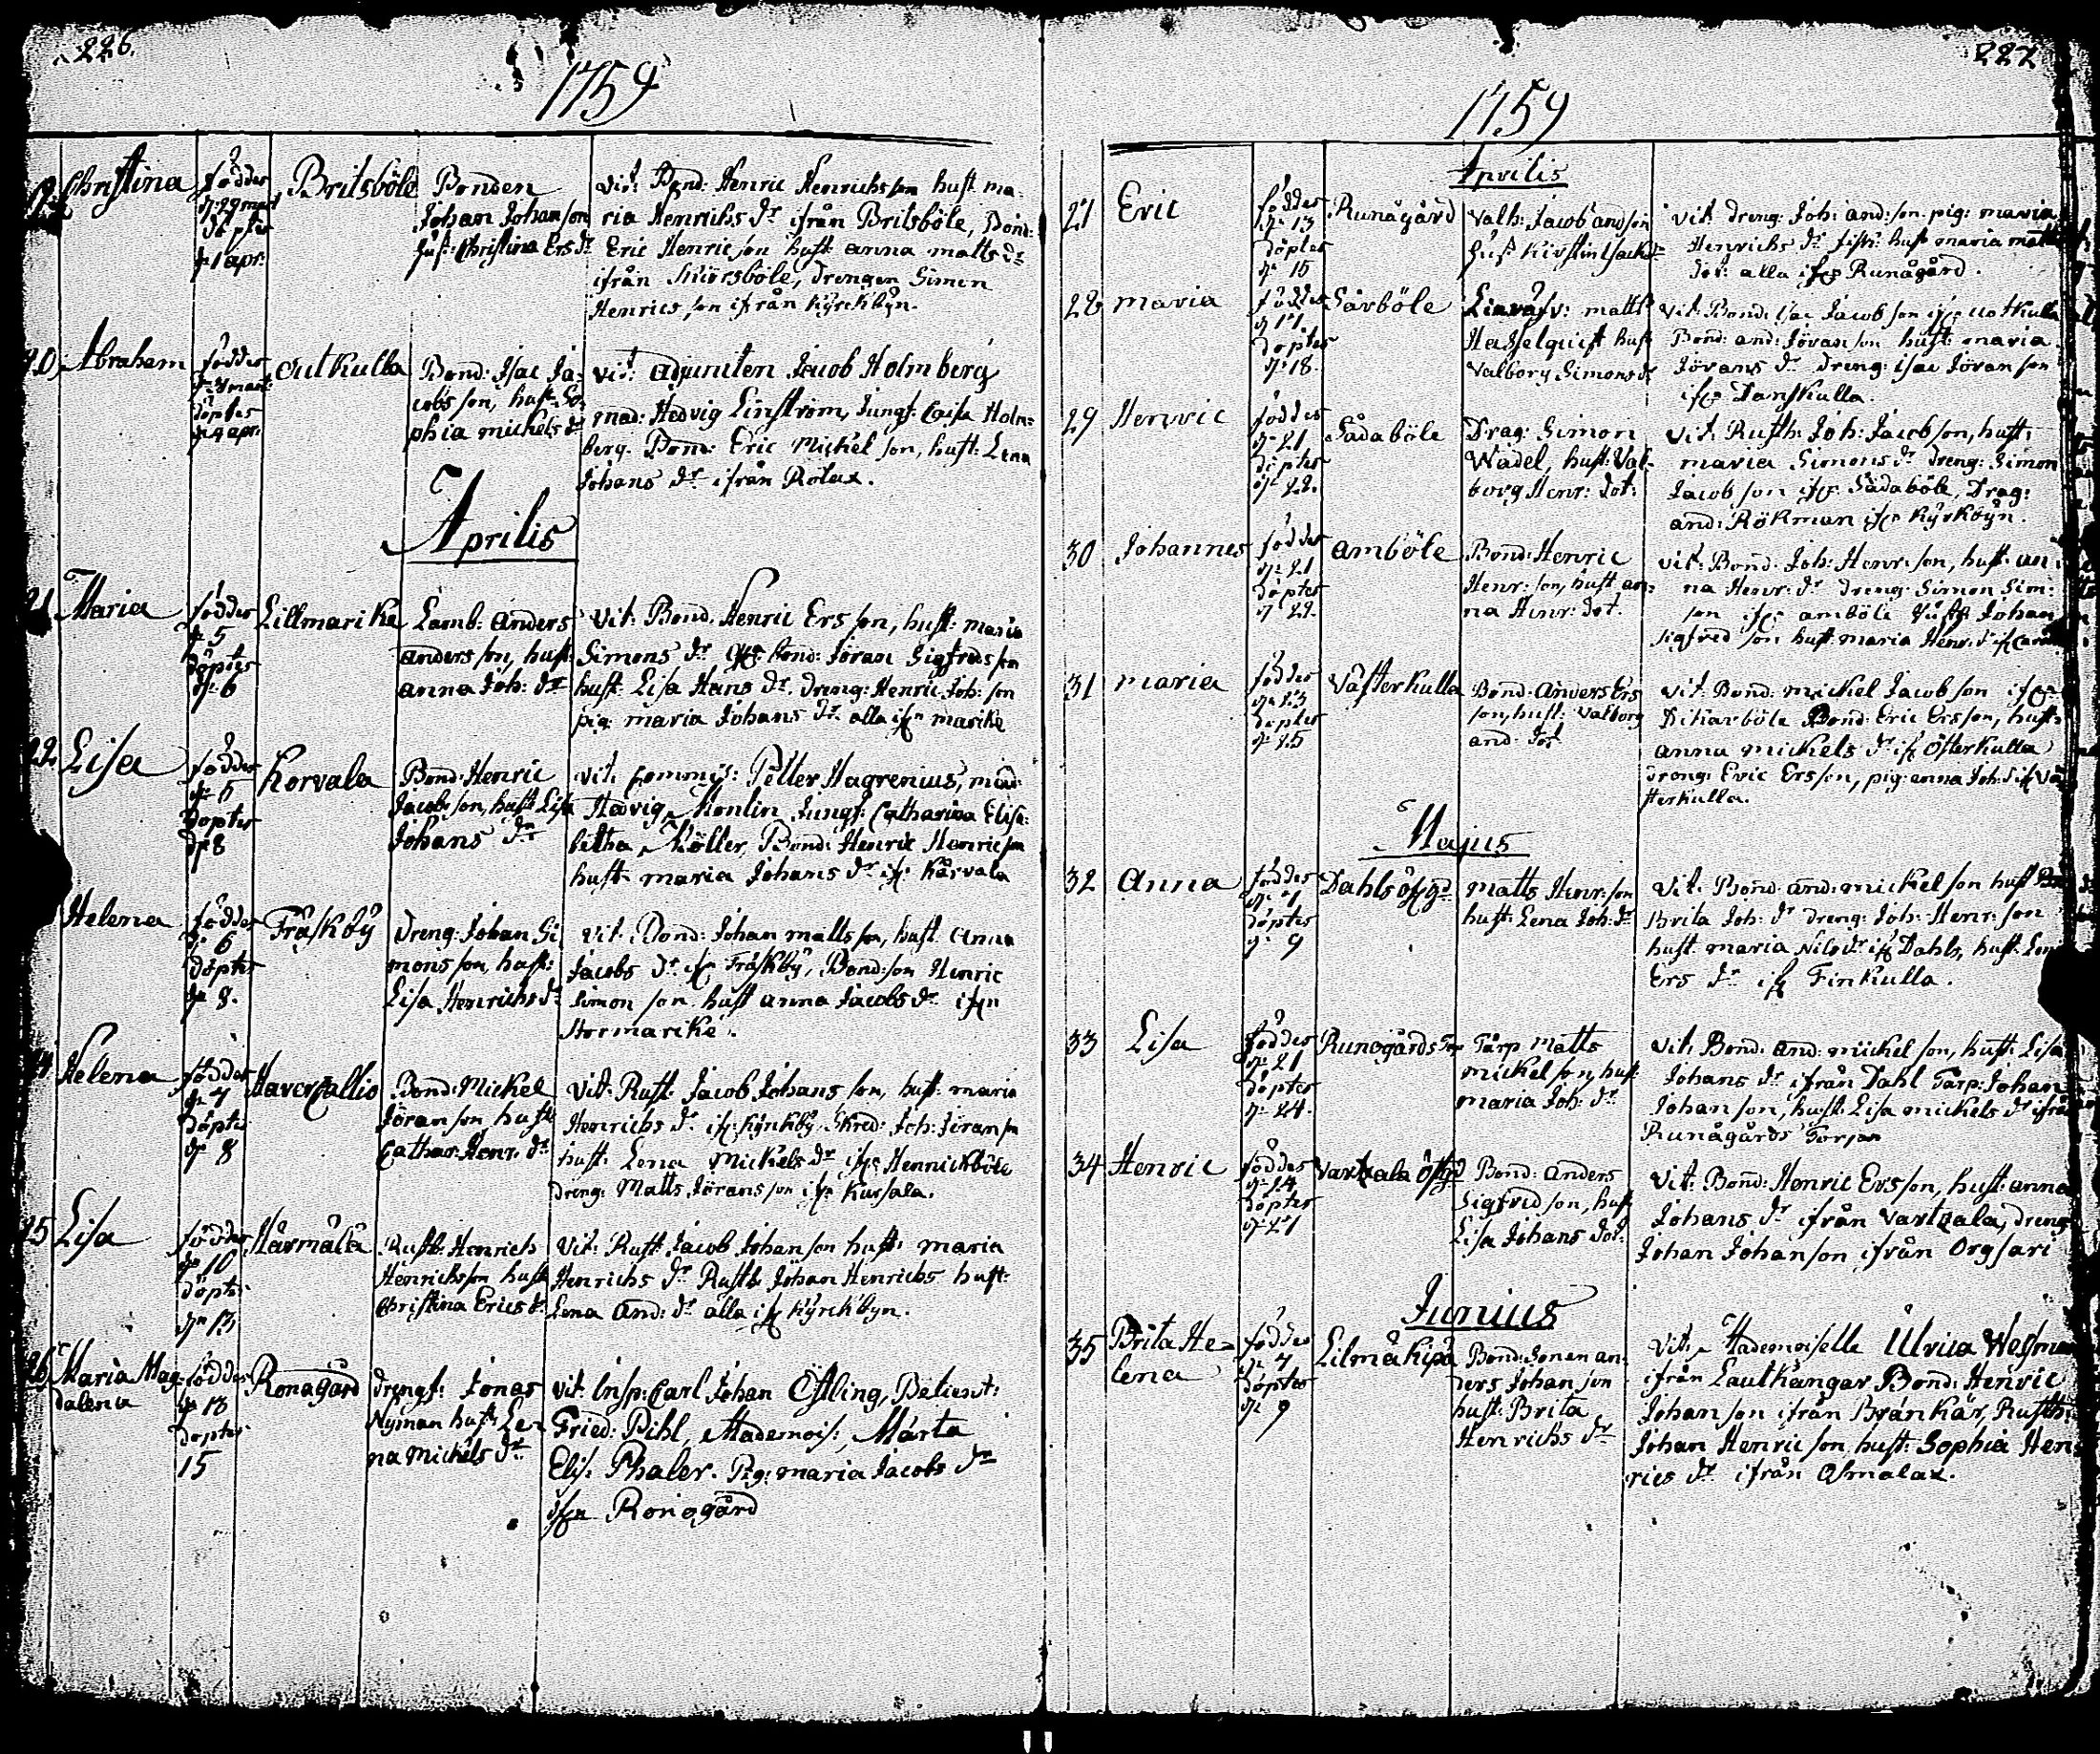 226.
1759
19. Christina föddes d: 29 mart döptes d: 1 apr: Britsböle Bonden Johan Johanson huf: Christina Ers dr
vit: Bond: Henric Henrichsson hust ma-
ria Henrichs dr ifrån Britsböle, Bond:
Eric Henricson hust anna matts dr
ifrån, drengen Simon
Henricsson ifrån Kyrckbyn.
20. Abraham föddes mart: döptes apr: outkulla Bond: Isac Ja-
cobsson, hust: So-
phia mickels dr
vit: adjuncten Jacob Holmberg
mad: Hedvig Linström, Jungf: Caisa Holm-
berg. Bond: Eric Mickelson, hust: Lena
Johans dr ifrån Rölax.
Aprilis
21 Maria föddes d: 5 döptes d: 6 Lillmarike Lamb: anders
andersson, hust:
anna Joh: dr
vit: Bond: Henric Ersson, hust: maria
Simons dr bond: Jöran Sigfredsson
hust: Lisa Hans dr. dreng: Henric Joh: son
pig: maria Johans dr. alla ifr marike
22. Lisa föddes d: 5 döptes d: 8 Korvala Bond: Henric
Jacobsson, hust: Lisa
Johans dr
vit: Commis: Petter Hagrenius, mad:
Hedvig Monlin, Jungf: Catharina Elisa-
betha Möller, Bond: Henric Henricson
hust: maria Johans dr ifr Kårvala
Helena föddes d: 6 döptes d: 8. Träskby Dreng: Johan Si-
monsson, hust:
Lisa Henrichs dr
vit: Bond: Johan mattsson, hust: Anna
Jacobs dr ifr Träskby, Bond: son Henric
Simonson hust anna Jacobs dr ifrn
Stormarike.
24 Helena föddes d: 7 döptes d: 8 Havercallio Bond: Mickel
Jöranson, hust:
Cathar: Henr: dr
vit: Rust: Jacob Johansson, hust: maria
Henrichs dr ifr Kyrkby, Skred: Joh: Jöranson
hust: Lena Mickels dr ifr Hennickböle
dreng: Matts Jöransson ifr Kursala.
25 Lisa föddes d: 10 döptes d: 13 Mårmåla Rust: Henrich
Henrichsson hust
Christina Erics dr
vit: Rust Jacob Johanson hust: maria
Henrichs dr Rusth: Johan Henrichs hust:
Lena And: dr alla ifr Kyrckbyn.
26. Maria Mag-
dalena föddes d: 13 döptes 15 Ronagård drengf: Jonas
Nyman hust: Le-
na Mickels dr
vit: Insp: Carl Johan Öfling, Betient:
Fried: Pihl, Mademois: Märta
Elis: Phaler. Pig: maria Jacobs dr
ifrn Ronogård
227
1759
Aprilis
27 Eric föddes d: 13 döptes d: 15 Runågård Valb: Jacob andson
huf: Kirstin Isacks dr
vit: dreng: Joh: and: son. pig: maria
Henrichs dr hust maria matts
dot: alla ifr Runågård.
28 maria föddes d: 17 döptes d: 18. Såvböle matts
Hasselquist hust:
Valborg Simons dr
vit: Bond: Isac Jacobson ifr outkulla
Bond: and: Jöranson hust: maria
Jörans dr dreng: Isac Jöranson
ifr Danskulla.
29 Henric föddes d: 21 döptes d: 22. Sådaböle Drag: Simon
Wadel, hust: Val-
borg Henr: dot:
vit: Rusth: Joh: Jacobson, hust:
maria Simons dr dreng: Simon
Jacobson ifr Sådaböle, Drag:
and: Rökman ifr Kyrkbyn.
30 Johannes föddes d: 21 döptes d: 22. amböle Bond: Henric
Henr: son, hust an-
na Henr: dot.
vit: Bond: Joh: Henr: son, hust: an-
na Henr: dr dreng: Simon Sim:
son ifr amböle Johan
Sigfredson hust: maria Henr: dr
31 maria föddes d: 23 döptes d: 25 Västerkulla Bond: anders Ers
son, hust: Valborg
and: dot
vit: Bond: mickel Jacobson ifr
Dikarböle Bond: Eric Ersson, hust:
anna mickels dr ifr Österkulla
dreng: Eric Ersson, pig: anna Joh: d ifr Vä-
sterkulla.
Majus
32 Anna föddes d: 7 döptes d: 9 Dahlsöfg: matts Henr: son
hust: Lena Joh: dr
vit: Bond: and: mickelson hust
Brita Joh: dr dreng: Joh: Henr: son
hust maria Nils dr ifr Dahls, hust: Lena
Ers dr ifr Finkulla.
33 Lisa föddes d: 21 döptes d: 24. Runogårds Tor Tårp matts
mickelson, hust
maria Joh: dr
vit: Bond: and: mickelson, hust: Lisa
Johans dr ifrån Dahl Tarp: Johan
Johanson, hust: Lisa mickels dr ifrån
Runågårds Torpan
34 Henric föddes d: 24 döptes d: 27 Vartzala Bond: anders
Sigfredson, hust
Lisa Johans dot.
vit: Bond: Henric Ersson, hust: anna
Johans dr ifrån Vartzala, dreng
Johan Johanson ifrån Orgsari
Junius
35 Brita He-
lena föddes d: 7 döptes d: 9 Lilmåkipä Bond: sonen an-
ders Johanson
hust: Brita
Henrichs dr
vit: Mademoiselle Ulrica Wegman
ifrån Lautkangar Bond: Henric
Johanson ifrån Brankär, Rusth:
Johan Henricson, hust: Sophia Hen-
rics dr ifrån Osmalax.